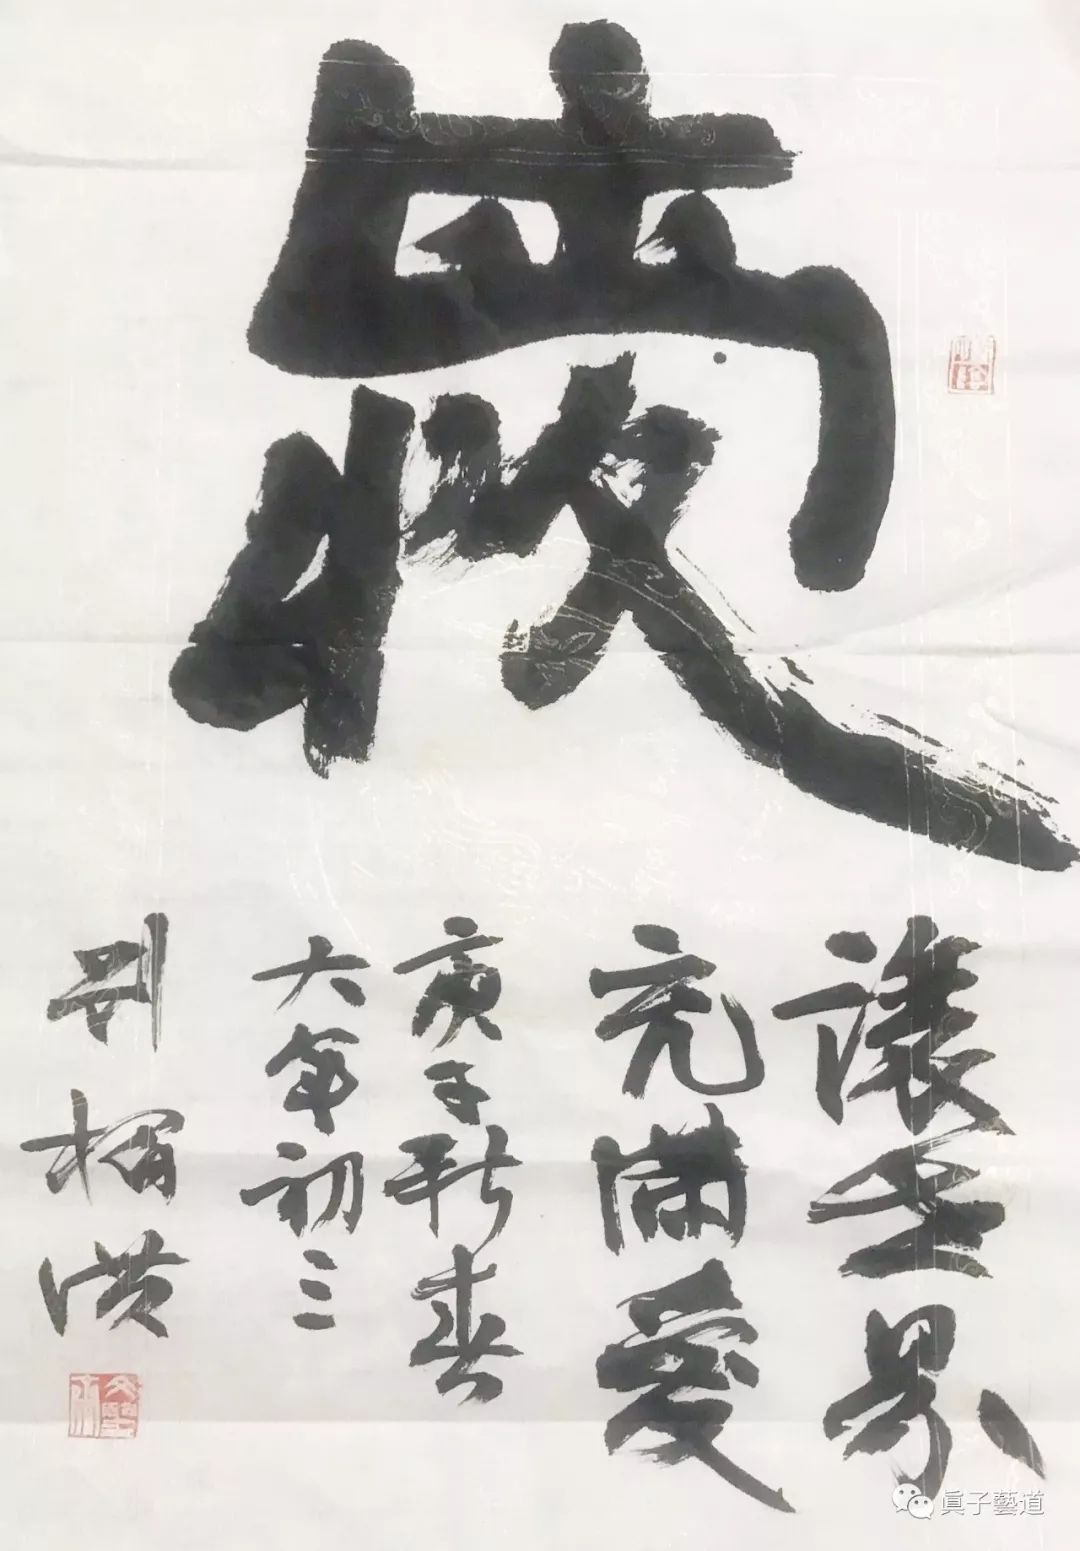 讓世界
充滿愛
庚子新春
大年初三
洪
眞子藝道